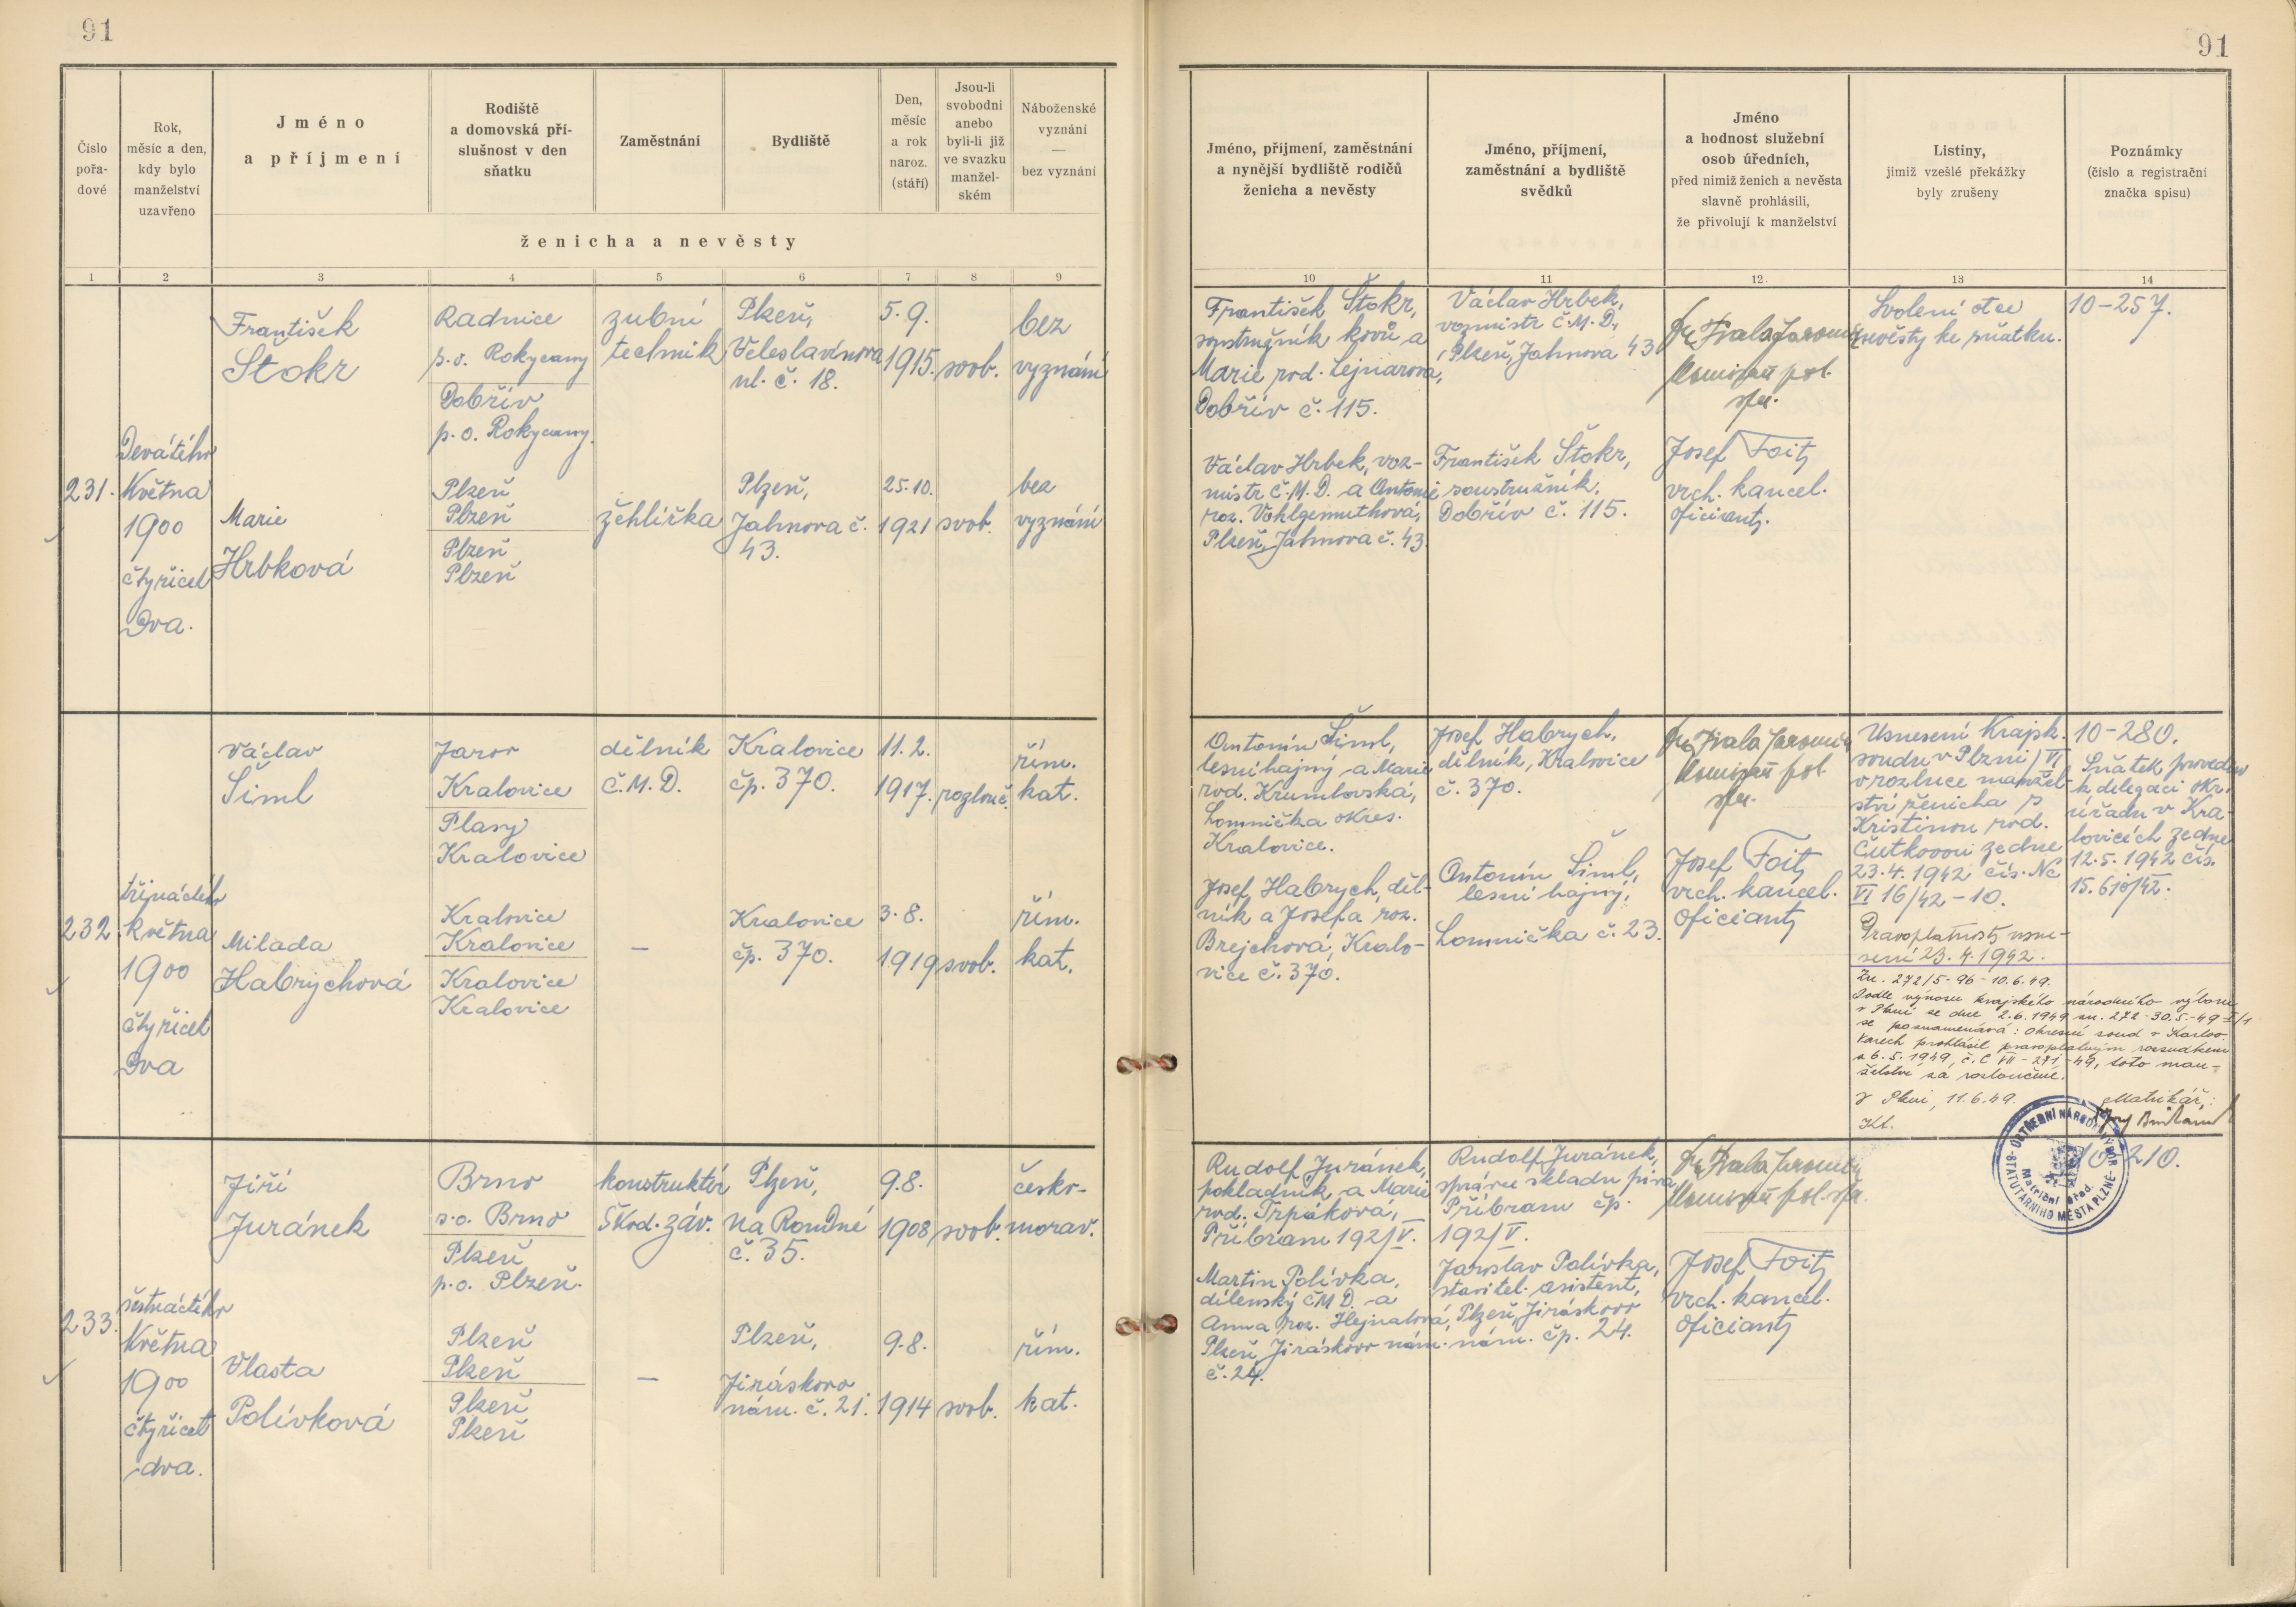 91
91
Číslo
pořa-
dové
Rok,
měsíc a den,
kdy bylo
manželství
uzavřeno
Jméno
a příjmení
Rodiště
a domovská pří-
slušnost v den
sňatku
Zaměstnání
Bydliště
Den,
měsíc
a rok
naroz.
(stáří)
Jsou-li
svobodni
anebo
byli-li již
ve svazku
manžel-
ském
Náboženské
vyznání
—
bez vyznání
ženicha a nevěsty
Jméno, příjmení, zaměstnání
a nynější bydliště rodičů
ženicha a nevěsty
Jméno, příjmení,
zaměstnání a bydliště
svědků
Jméno
a hodnost služební
osob úředních,
před nimiž ženich a nevěsta
slavně prohlásili,
že přivolují k manželství
Listiny,
jimiž vzešlé překážky
byly zrušeny
Poznámky
(číslo a registrační
značka spisu)
1 2 3 4 5 6 7 8 9 10 11 12. 13 14
231.
Devátého
Května
1900
čtyřicet
Dva.
František
Štokr
Radnice
p.o. Rokycany
Dobřív
p.o. Rokycany.
zubní
technik
Plzeň,
Veleslavínova
ul. č. 18.
5.9.
1915.
svob.
bez
vyznání
Marie
Hrbková
Plzeň
Plzeň
Plzeň
Plzeň
žehlířka
Plzeň,
Jahnova č.
43.
25.10.
1921
svob.
bez
vyznání
František Štokr,
soustružník kovů a
Marie rod. Lejnarová,
Dobřív č. 115.
Václav Hrbek, voz-
mistr Č.M.D. a Antonie
roz. Vohlgemuthová,
Plzeň, Jahnova č. 43.
Václav Hrbek,
vozmistr Č.M.D.,
Plzeň, Jahnova 43
František Štokr,
soustružník,
Dobřív č. 115.
Dr. Fiala Jaromír
komisař pol.
spr.
Josef Foit,
vrch. kancel.
oficiant.
Svolení otce
nevěsty ke sňatku.
10-257.
232.
třináctého
května
1900
čtyřicet
Dva
Václav
Šiml
Jarov
Kralovice
Plasy
Kralovice
dělník
Č.M.D.
Kralovice
čp. 370.
11.2.
1917.
rozlouč.
řím.
kat.
Milada
Habrychová
Kralovice
Kralovice
Kralovice
Kralovice
—
Kralovice
čp. 370.
3.8.
1919
svob.
řím.
kat.
Antonín Šiml,
lesní hajný a Marie
rod. Krumlovská,
Lomnička okres.
Kralovice.
Josef Habrych, děl-
ník a Josefa roz.
Brejchová, Kralo-
vice č. 370.
Josef Habrych,
dělník, Kralovice
č. 370.
Antonín Šiml,
lesní hajný,
Lomnička č. 23.
Dr. Fiala Jaromír
komisař pol.
spr.
Josef Foit,
vrch. kancel.
oficiant
Usnesení Krajsk.
soudu v Plzni/VI
o rozluce manžel-
ství ženicha s
Kristinou rod.
Cutkovou ze dne
23.4.1942 čís. Nc
VI 16/42-10.
Pravoplatnost usne-
sení 23.4.1942.
10-280.
Sňatek proveden
k delegaci okr.
úřadu v Kra-
lovicích ze dne
12.5.1942 čís.
15.610/42.
Zn. 272/5-96-10.6.49.
Podle výnosu krajského národního výboru
v Plzni ze dne 2.6.1949 zn. 272-30.5.-49-I/1
se poznamenává: Okresní soud v Karlov.
Varech prohlásil pravoplatným rozsudkem
z 6.5.1949, č. C VII-271-49, toto man-
želství za rozloučené.
V Plzni, 11.6.49.
Matrikář:
Kt.
ÚSTŘEDNÍ NÁRODNÍ VÝBOR
STATUTÁRNÍHO MĚSTA PLZNĚ
Matriční úřad.
233.
šestnáctého
Května
1900
čtyřicet
dva.
Jiří
Juránek
Brno
s.o. Brno
Plzeň
p.o. Plzeň.
konstruktér
Škod. záv.
Plzeň,
Na Roudné
č. 35.
9.8.
1908
svob.
česko-
morav.
Vlasta
Polívková
Plzeň
Plzeň
Plzeň
Plzeň
—
Plzeň,
Jiráskovo
nám. č. 21.
9.8.
1914
svob.
řím.
kat.
Rudolf Juránek,
pokladník a Marie
rod. Trpáková,
Příbram 192/V.
Martin Polívka,
dílenský ČMD. a
Anna roz. Hejnalová,
Plzeň, Jiráskovo nám.
č. 24.
Rudolf Juránek,
správce skladu piva
Příbram čp.
192/V.
Jaroslav Polívka,
stavitel. asistent,
Plzeň, Jiráskovo
nám. čp. 24.
Dr. Fiala Jaromír
komisař pol. spr.
Josef Foit,
vrch. kancel.
oficiant
10-210.